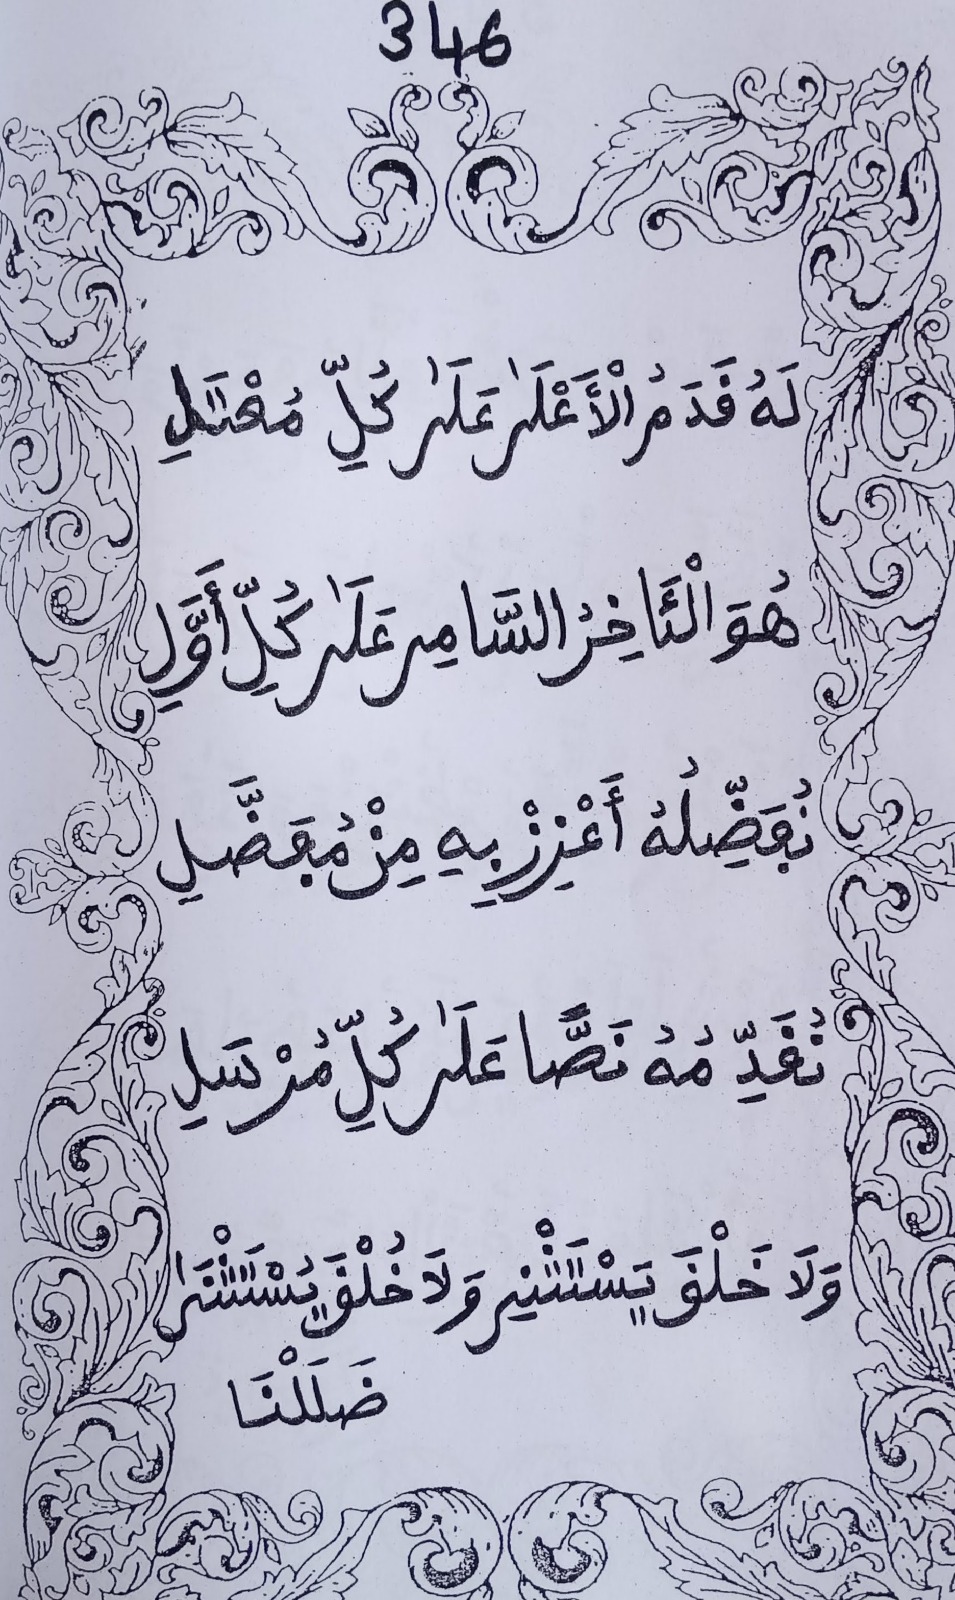 346
لَهُ قَدَمُ الْأَعْلَىٰ عَلَىٰ كُلِّ مُعْتَلِ
هُوَ الْئَاخِرُ السَّامِي عَلَىٰ كُلِّ أَوَّلِ
نُفَضِّلُهُ أَعْزِزْ بِهِ مِنْ مُفَضَّلِ
نُقَدِّمُهُ نَصًّا عَلَىٰ كُلِّ مُرْسَلِ
وَلَا خَلْقَ يَسْتَثْنِي وَلَا خُلْقَ يُسْتَثْنَىٰ
ضَلَلْنَا